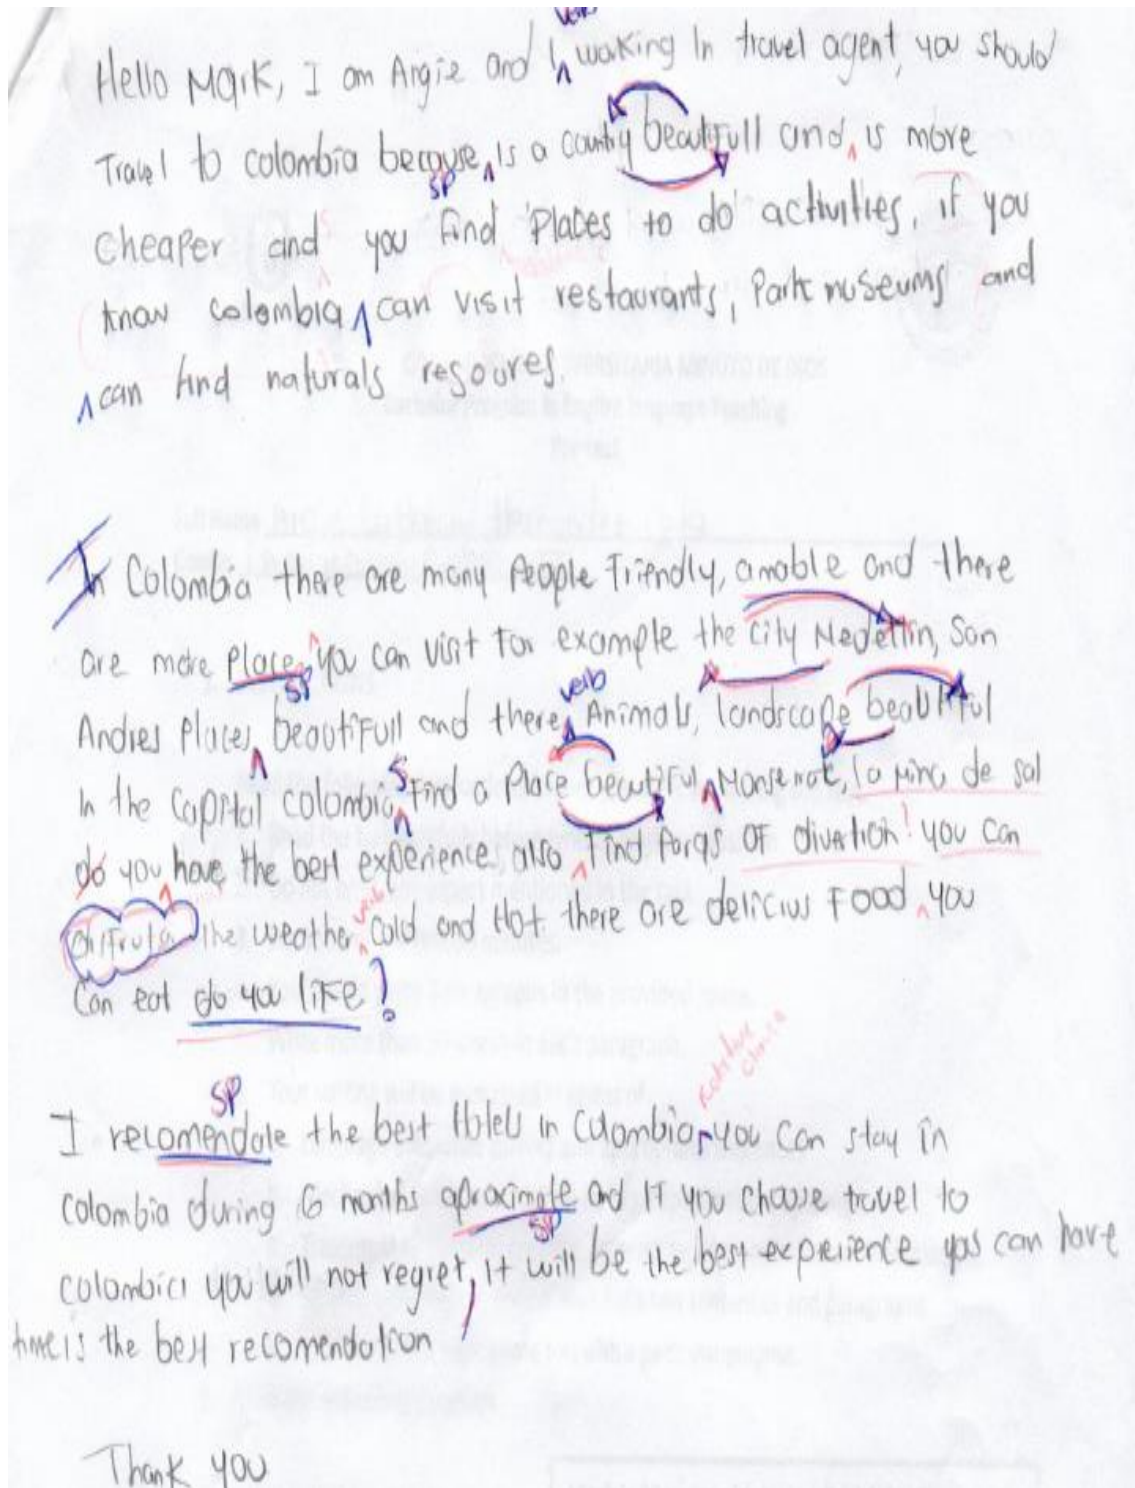 verb
Hello Mark, I am Angie and I working In travel agent, you should
Travel to colombia becouse is a country beautifull and is more
SP
cheaper and you find Places to do activities, if you
know colombia can visit restaurants, Park museums and
can find naturals resources.
In Colombia there are many People Friendly, amable and there
are more Place you can visit For example the city Medellin, San
SP
verb
Andres Places beautifull and there Animals, landscape beautiful
S
In the capital colombia find a Place beautiful, Monserrate, la mina de sal
do you have the best experience, also find Parqs OF divertion! you can
verb
disfrute the weather cold and Hot. there are delicius Food you
Can eat do you liFe !
Relative
clause
SP
I recomendate the best Hotels in Colombia you can stay in
colombia during 6 months aproximate and IF you choose travel to
SP
colombia you will not regret, it will be the best experience you can have
time is the best recomendation
Thank you